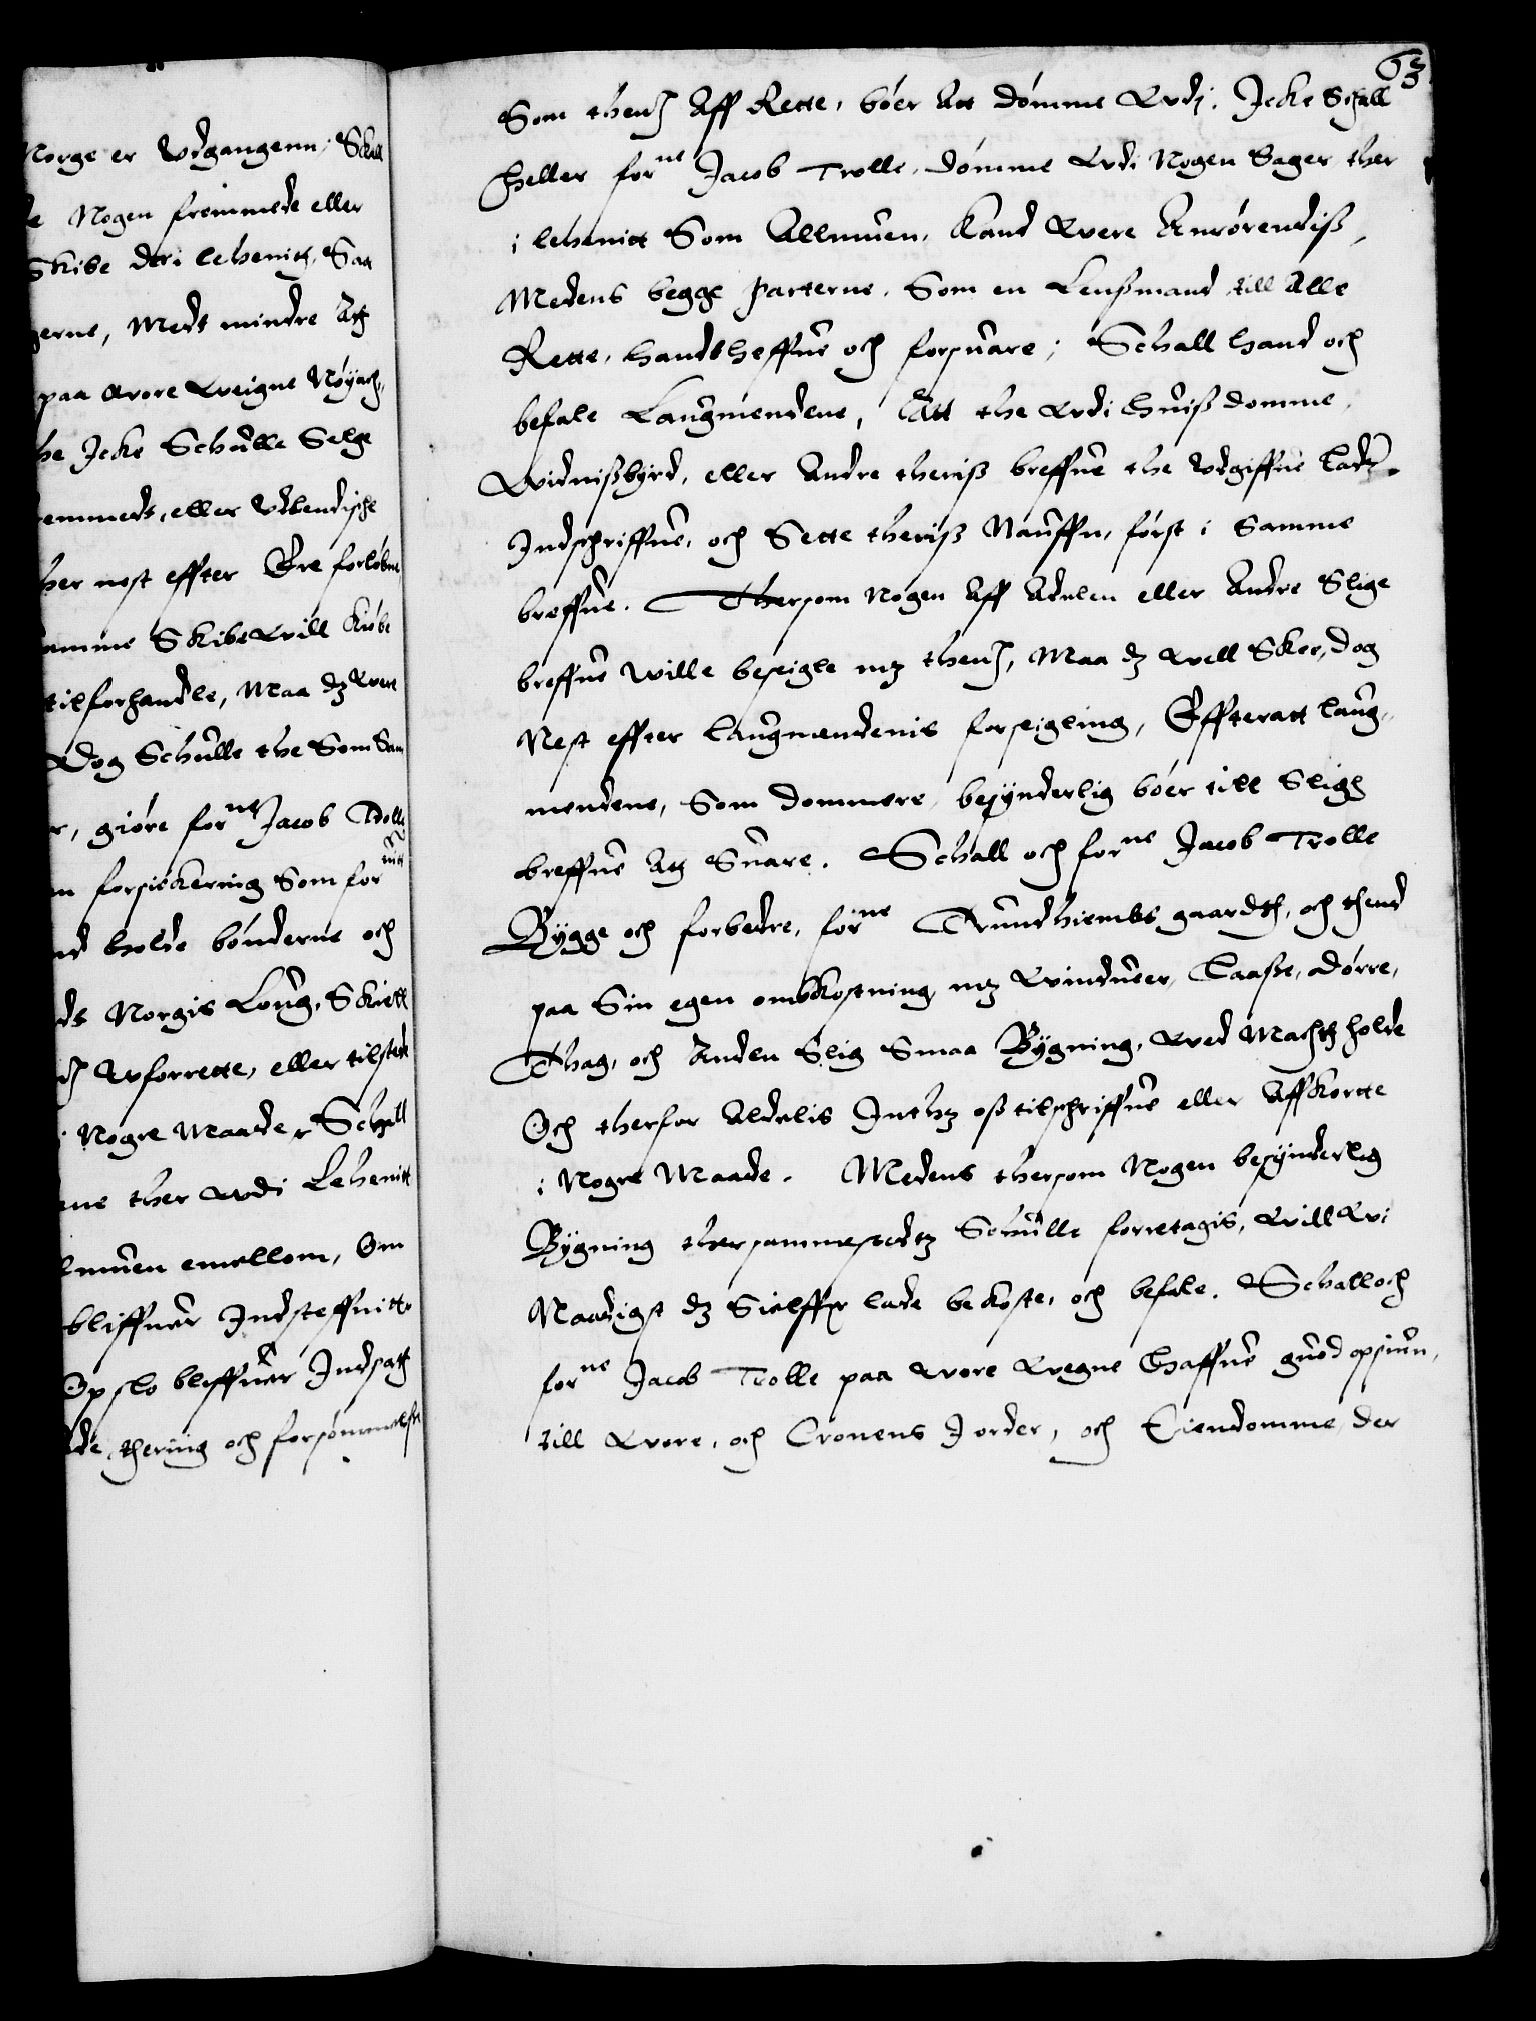 Norge er Vdgangenn, Skall
Nogen fremmede eller
Skibe der i lehenitz, Saa
gerne, Medt mindre Atz
paa Wore Weigne Nøyach,
he Icke Schulle Selge
remmede, eller Vdlendische
her nest effter Ere forløbne
amme Skibe Will Kiøbe
tilforhandle, Maa dz Were
Dog Schulle the Som Saa
r, giøre forne Jacob Trolle
n forsickering Som fornitt
nd holde bønderne och
ds Norgis Loug, Skiell
Wforrette, eller tilstede
i Nogre Maade, Schall
ene ther Wdi Lehenitt
lmuen emellom, Om
bliffuer Indsteffnitt
Opslo bliffuer Indsatt
de, thering och forsømmelse
63
Som thend Aff Rette, bøer Att dømme Wdj. Icke Schall
heller forne Jacob Trolle, dømme Wdi Nogen Sager ther
i lehenitt Som Allmuen, Kand Were Anrørendiß,
Medens begge Parterne, Som en Lenßmand till Alle
Rette, handtheffue och forsuare; Schall hand och
befale Laugmendene, Att the Wdi huiß domme,
Widnißbyrd, eller Andre theriß breffue the Vdgiffue lader
Indschriffue, och Sette theriß Nauffn, først i Samme
breffue. Thersom Nogen Aff Adelen eller Andre Slige
breffue wille beseigle mz thend, Maa dz Well Skee, dog
Nest effter laugmendenis forseigling, Effteratt laug-
mendene, Som dommere, besynderlig bøer till Slige
breffue Atz Suare. Schall och forne Jacob Trolle
Bygge och forbedre, forne Trundhiembs gaardt, och thend
paa Sin egen ombkostning mz Winduer, Laasse, dørre,
Thag, och Anden Slig Smaa Bygning, Wed Machtt holde
Och therfor Aldelis Inthz oß tilschriffue eller Affkortte
i Nogre Maade. Medens thersom Nogen besynderlig
Bygning thersammestedtz Schulle forretagis, Will Wi
Naadigst dz Sielffr lade bekoste, och befale. Schall och
forne Jacob Trolle paa Wore Wegne Haffue gued opsiuen,
till Wore, och Cronens Jorder, och Eiendomme, der